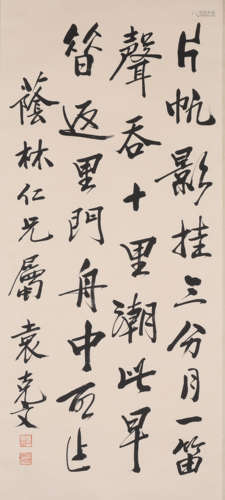 片帆影挂三分月一笛
聲吞十里潮此早
笛返里門舟中所上
蔭林仁兄屬 袁克文